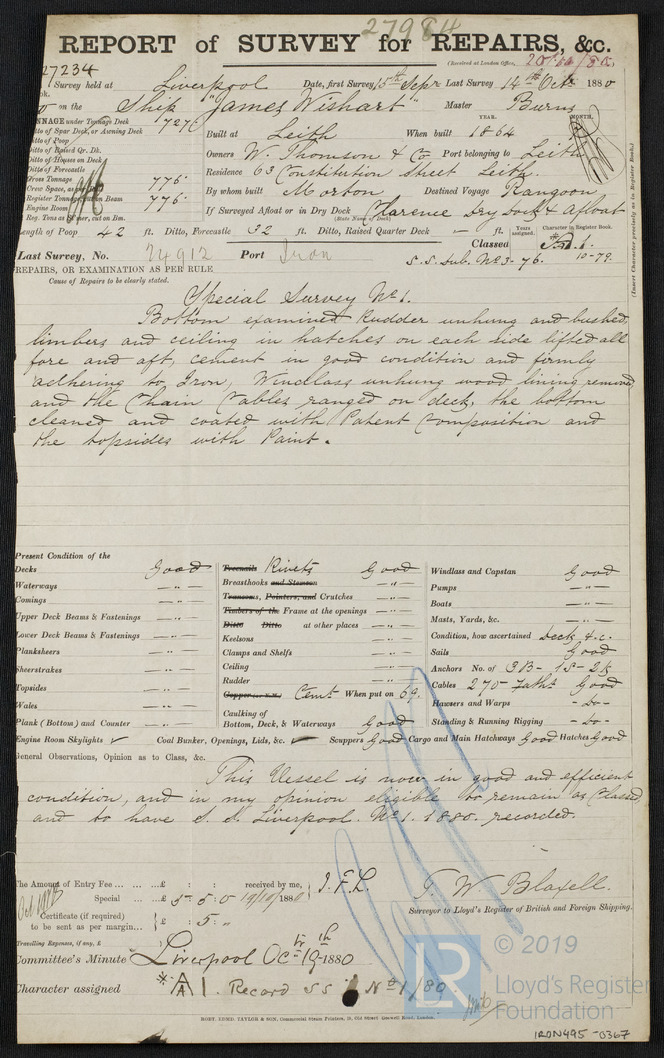 27984
REPORT of SURVEY for REPAIRS, &c.
(Received at London Office,
27234
Survey held at Liverpool Date, first Survey 15th Sepr Last Survey 14th Octr 1880
on the Ship "James Wishart" Master Burns
TONNAGE under Tonnage Deck 727
Ditto of Spar Deck, or Awning Deck
Ditto of Poop
Ditto of Raised Qr. Dk.
Ditto of Houses on Deck
Ditto of Forecastle
Gross Tonnage 776
Crew Space, as per
Register Tonnage, cut on Beam 776
Engine Room
Reg. Tons as per, cut on Bm.
YEAR. MONTH.
Built at Leith When built 1864
Owners W. Thomson & Co Port belonging to Leith
Residence 63 Constitution Street Leith.
By whom built Morton Destined Voyage Rangoon
If Surveyed Afloat or in Dry Dock Clarence Dry Dock & Afloat
(State Name of Dock)
Length of Poop 42 ft. Ditto, Forecastle 32 ft. Ditto, Raised Quarter Deck — ft.
Years assigned. Character in Register Book.
(Insert Character precisely as in Register Book.)
Last Survey, No. 24912 Port Iron Classed A 1.
S.S. Sub. No 3-76. 10-79.
REPAIRS, OR EXAMINATION AS PER RULE
Cause of Repairs to be clearly stated.
Special Survey No 1.
Bottom examined Rudder unhung and bushed,
limbers and ceiling in hatches on each side lifted all
fore and aft, cement in good condition and firmly
adhering to Iron, Windlass unhung wood lining removed
and the Chain Cables ranged on deck, the bottom
cleaned and coated with Patent Composition and
the topsides with Paint.
Present Condition of the
Decks Good
Waterways — " —
Comings — " —
Upper Deck Beams & Fastenings — " —
Lower Deck Beams & Fastenings — " —
Planksheers — " —
Sheerstrakes — " —
Topsides — " —
Wales — " —
Plank (Bottom) and Counter — " —
Treenails Rivets Good
Breasthooks and Stemson — " —
Transoms, Pointers, and Crutches — " —
Timbers of the Frame at the openings — " —
Ditto Ditto at other places — " —
Keelsons — " —
Clamps and Shelfs — " —
Ceiling — " —
Rudder — " —
Copper (or Y.M.) Cemt When put on 69.
Caulking of
Bottom, Deck, & Waterways Good
Windlass and Capstan Good
Pumps — " —
Boats — " —
Masts, Yards, &c. — " —
Condition, how ascertained Deck, &c.
Sails Good
Anchors No. of 3B - 1S - 2K
Cables 270 Faths Good
Hawsers and Warps - Do -
Standing & Running Rigging - Do -
Engine Room Skylights ✓ Coal Bunker, Openings, Lids, &c. ✓ Scuppers Good Cargo and Main Hatchways Good Hatches Good
General Observations, Opinion as to Class, &c.
This Vessel is now in good and efficient
condition, and in my opinion eligible to remain as Classed
and to have S.S. Liverpool No 1. 1880. recorded.
The Amount of Entry Fee ... ... ...£ : : received by me,
Special ... ..£ 5 - 5 - 0 19/10/1880 J.F.L.
T. W. Blaxell.
Surveyor to Lloyd's Register of British and Foreign Shipping.
Certificate (if required) £ : 5 : "
to be sent as per margin...
Travelling Expenses, if any, £
Committee's Minute Liverpool Octr 19th 1880
Character assigned A 1. Record SS No 1/80
ROBT. EDMD. TAYLOR & SON, Commercial Steam Printers, 19, Old Street, Goswell Road, London.
LR
© 2019
Lloyd's Register
Foundation
IRON495-0367